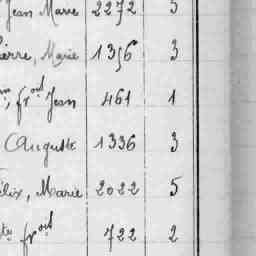 Jean Marie 2272 5
ierre, Marie 1356 3
fr çois Jean 461 1
Auguste 1336 3
élix, Marie 2022 5
fr çois 722 2